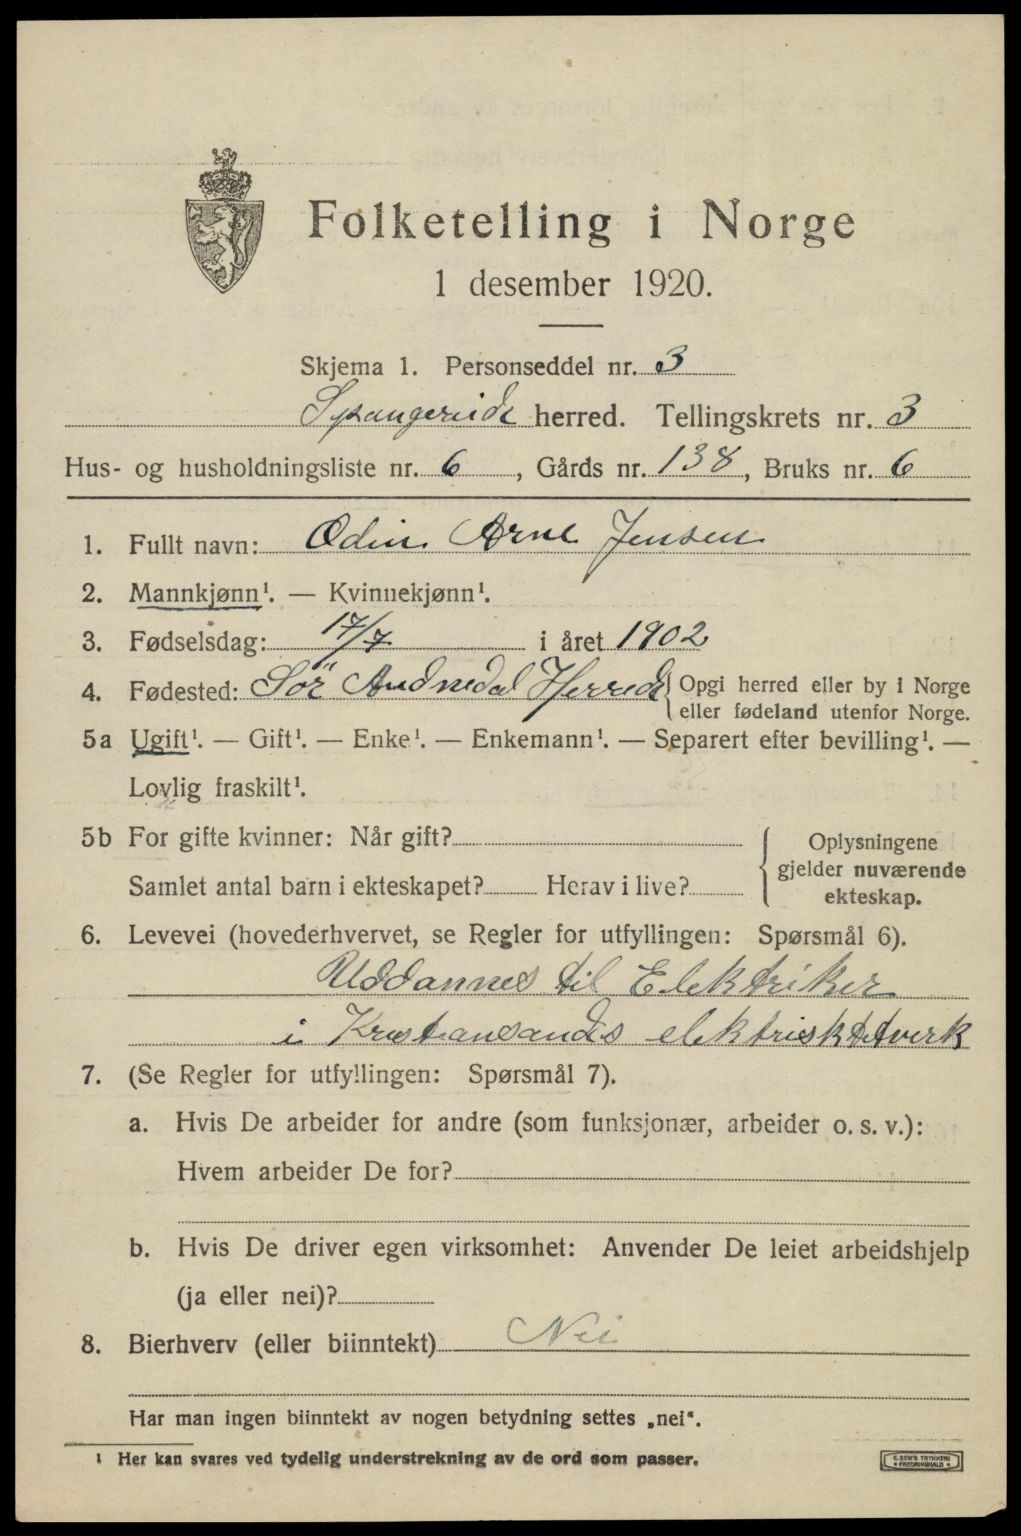 Folketelling i Norge
1 desember 1920.
Skjema 1. Personseddel nr. 3
Spangereid herred. Tellingskrets nr. 3
Hus- og husholdningsliste nr. 6, Gårds nr. 138, Bruks nr. 6
1. Fullt navn: Odin Arne Jensen
2. Mannkjønn¹. — Kvinnekjønn¹.
3. Fødselsdag: 17/7 i året 1902
4. Fødested: Sör Audnedal Herred { Opgi herred eller by i Norge
eller fødeland utenfor Norge.
5a Ugift¹. — Gift¹. — Enke¹. — Enkemann¹. — Separert efter bevilling¹. —
Lovlig fraskilt¹.
5b For gifte kvinner: Når gift?
Samlet antal barn i ekteskapet? Herav i live?
{ Oplysningene
gjelder nuværende
ekteskap.
6. Levevei (hovederhvervet, se Regler for utfyllingen: Spørsmål 6).
Uddannes til Elektriker
i Kristiansands elektrisktetverk
7. (Se Regler for utfyllingen: Spørsmål 7).
a. Hvis De arbeider for andre (som funksjonær, arbeider o. s. v.):
Hvem arbeider De for?
b. Hvis De driver egen virksomhet: Anvender De leiet arbeidshjelp
(ja eller nei)?
8. Bierhverv (eller biinntekt) Nei
Har man ingen biinntekt av nogen betydning settes „nei“.
¹ Her kan svares ved tydelig understrekning av de ord som passer.
TRYKKERI
FREDRIKSHALD